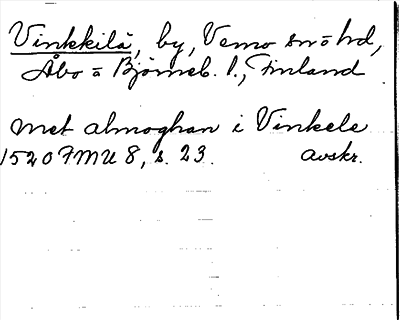 Vinkkilä, by, Vemo sn o hd,
Åbo o Björneb. l., Finland
met almoghan i Vinkele
1520 FMU 8, s. 23. avskr.